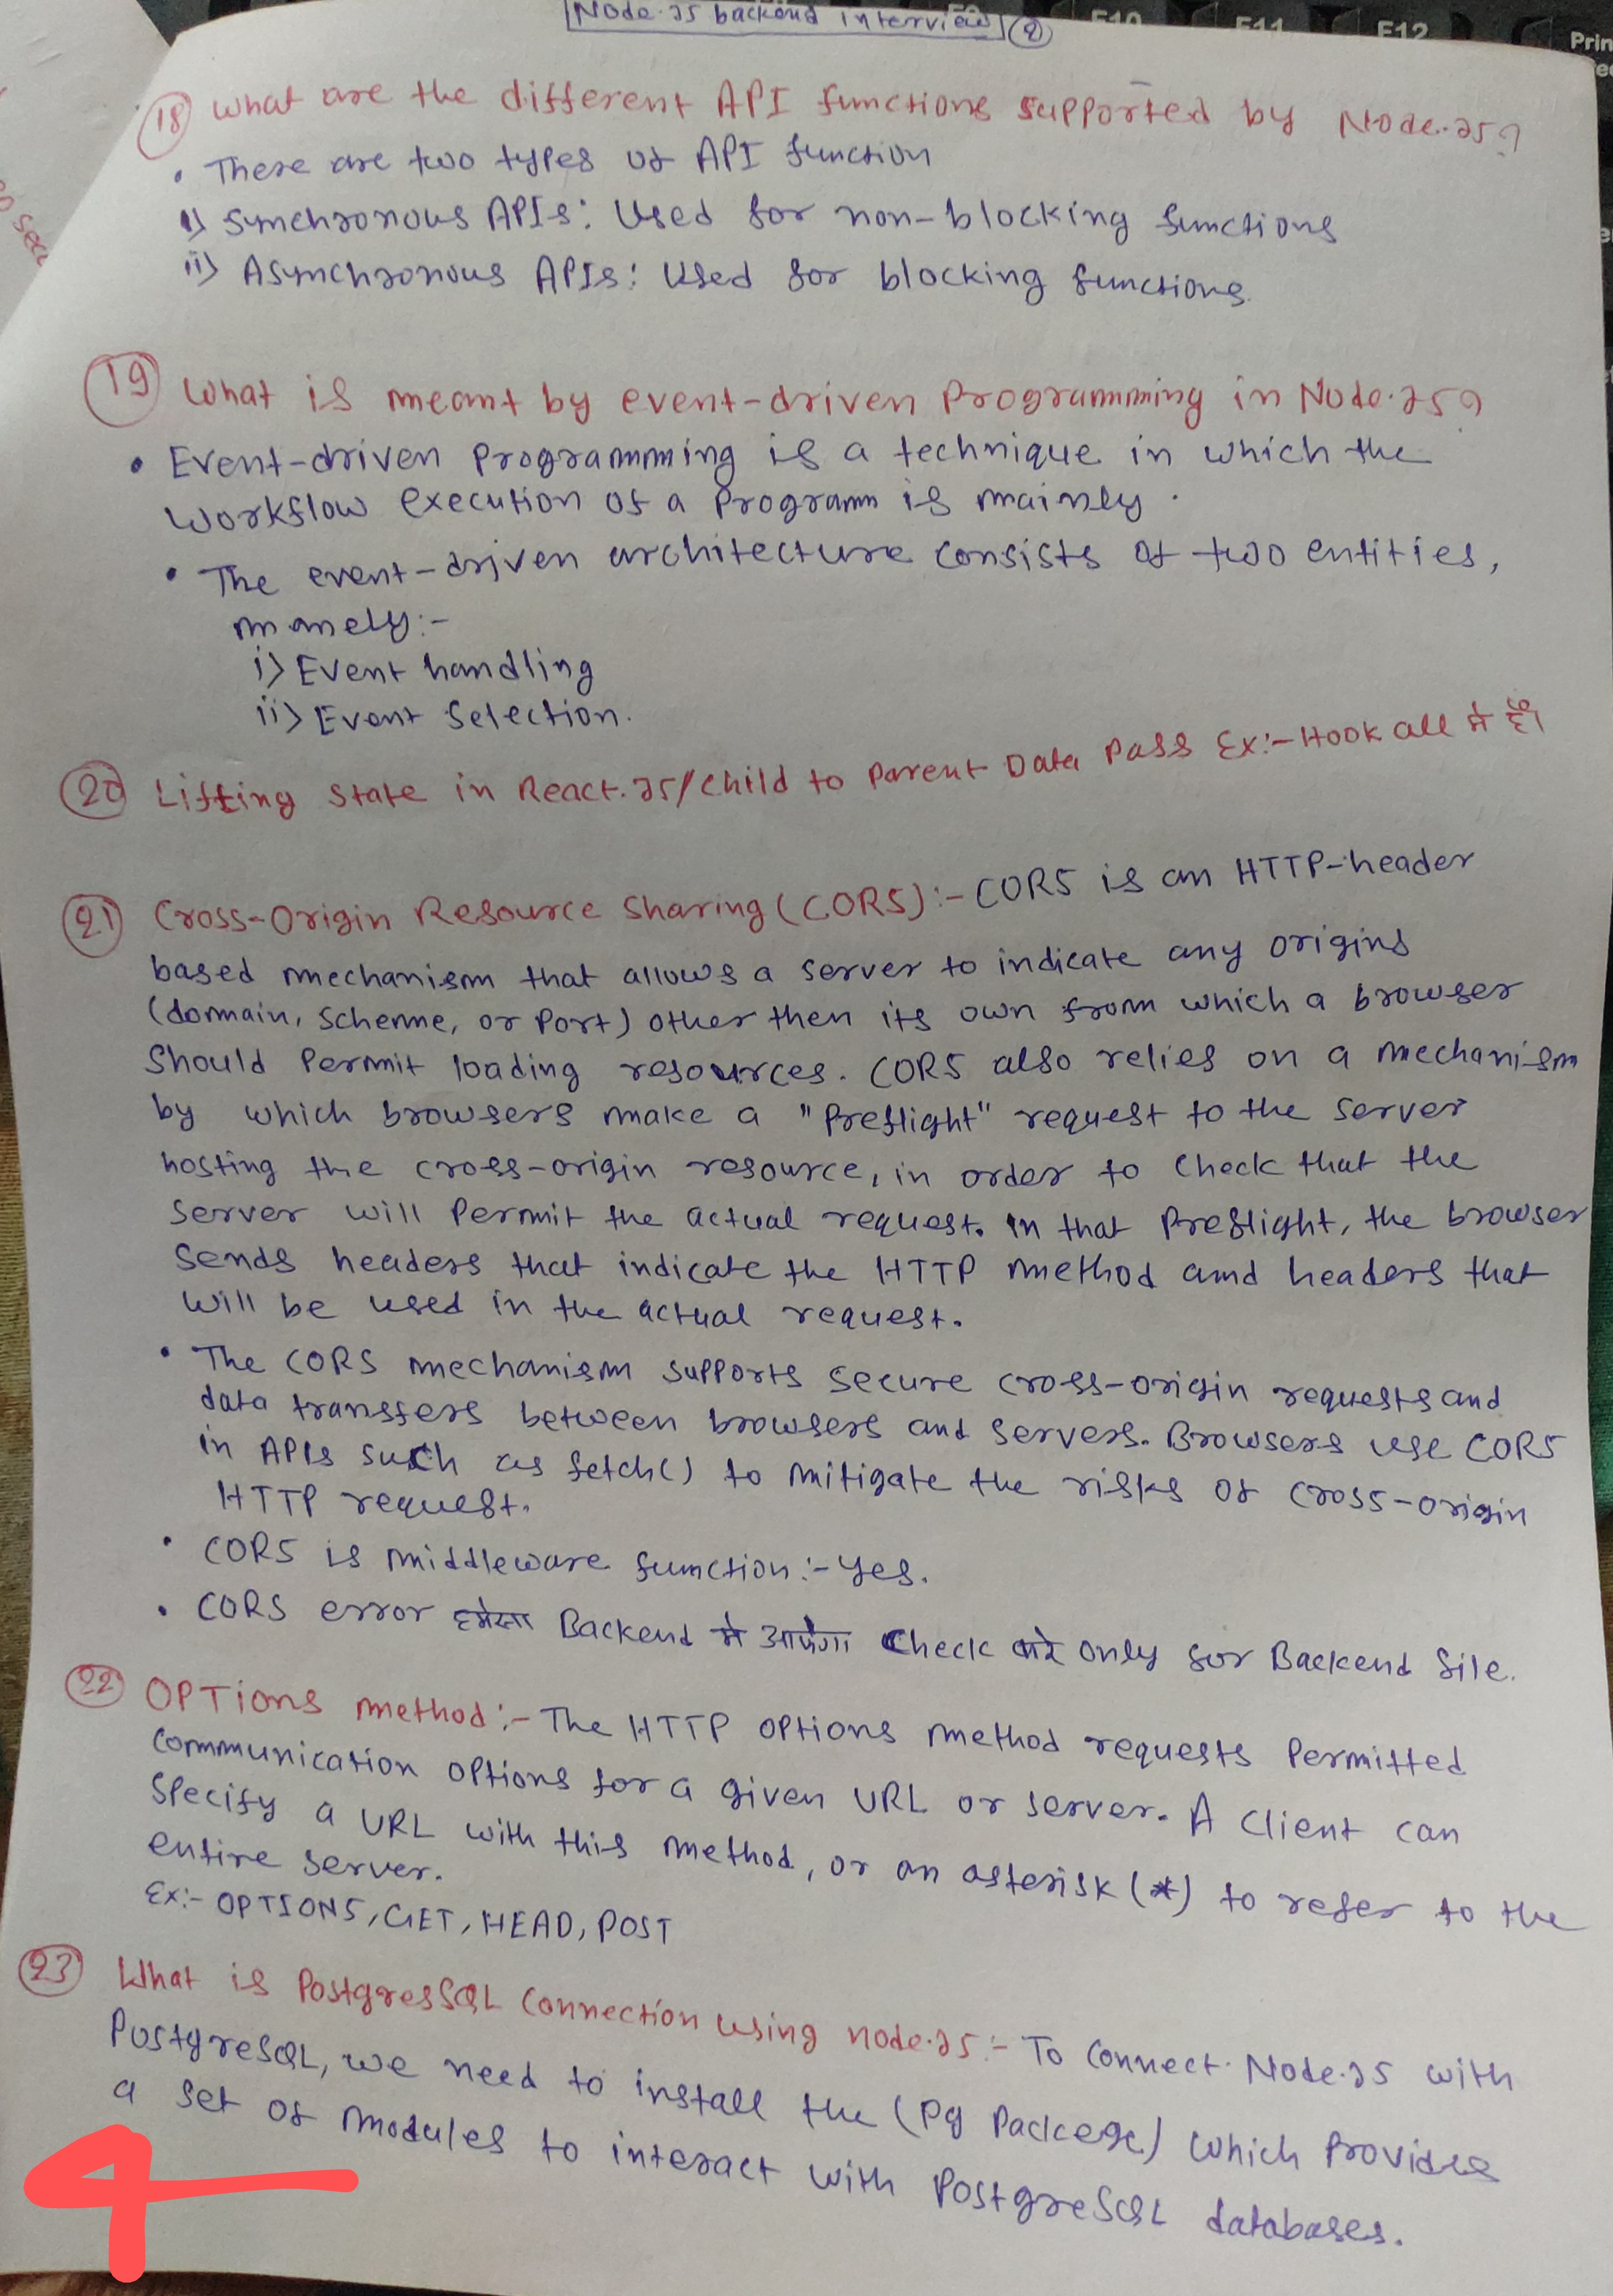 Node.JS backend interview (2)
(18) What are the different API functions supported by Node.JS?
• There are two types of API function
i) Synchronous APIs: Used for non-blocking functions
ii) Asynchronous APIs: Used for blocking functions.
(19) What is meant by event-driven Programming in Node.JS?
• Event-driven Programming is a technique in which the
workflow execution of a Programm is mainly.
• The event-driven architecture consists of two entities,
namely:-
i) Event handling
ii) Event Selection.
(20) Lifting state in React.JS/child to Parent Data Pass Ex:- Hook all में है।
(21) Cross-Origin Resource Sharing (CORS):- CORS is an HTTP-header
based mechanism that allows a server to indicate any origins
(domain, scheme, or Port) other then its own from which a browser
Should Permit loading resources. CORS also relies on a mechanism
by which browsers make a "Preflight" request to the server
hosting the cross-origin resource, in order to check that the
server will Permit the actual request. In that Preflight, the browser
Sends headers that indicate the HTTP method and headers that
will be used in the actual request.
• The CORS mechanism supports secure cross-origin requests and
data transfers between browsers and servers. Browsers use CORS
in APIs such as fetch() to mitigate the risks of cross-origin
HTTP request.
• CORS is middleware function:- Yes.
• CORS error हमेसा Backend में आयेगा Check करे only for Backend file.
(22) OPTions method:- The HTTP options method requests Permitted
Communication options for a given URL or server. A Client can
Specify a URL with this method, or an asterisk (*) to refer to the
entire server.
Ex:- OPTIONS, GET, HEAD, POST
(23) What is PostgresSQL Connection using node.JS:- To Connect Node.JS with
PostgreSQL, we need to install the (Pg Packege) which Provides
a set of modules to interact with PostgreSQL databases.
4
F10
F11
F12